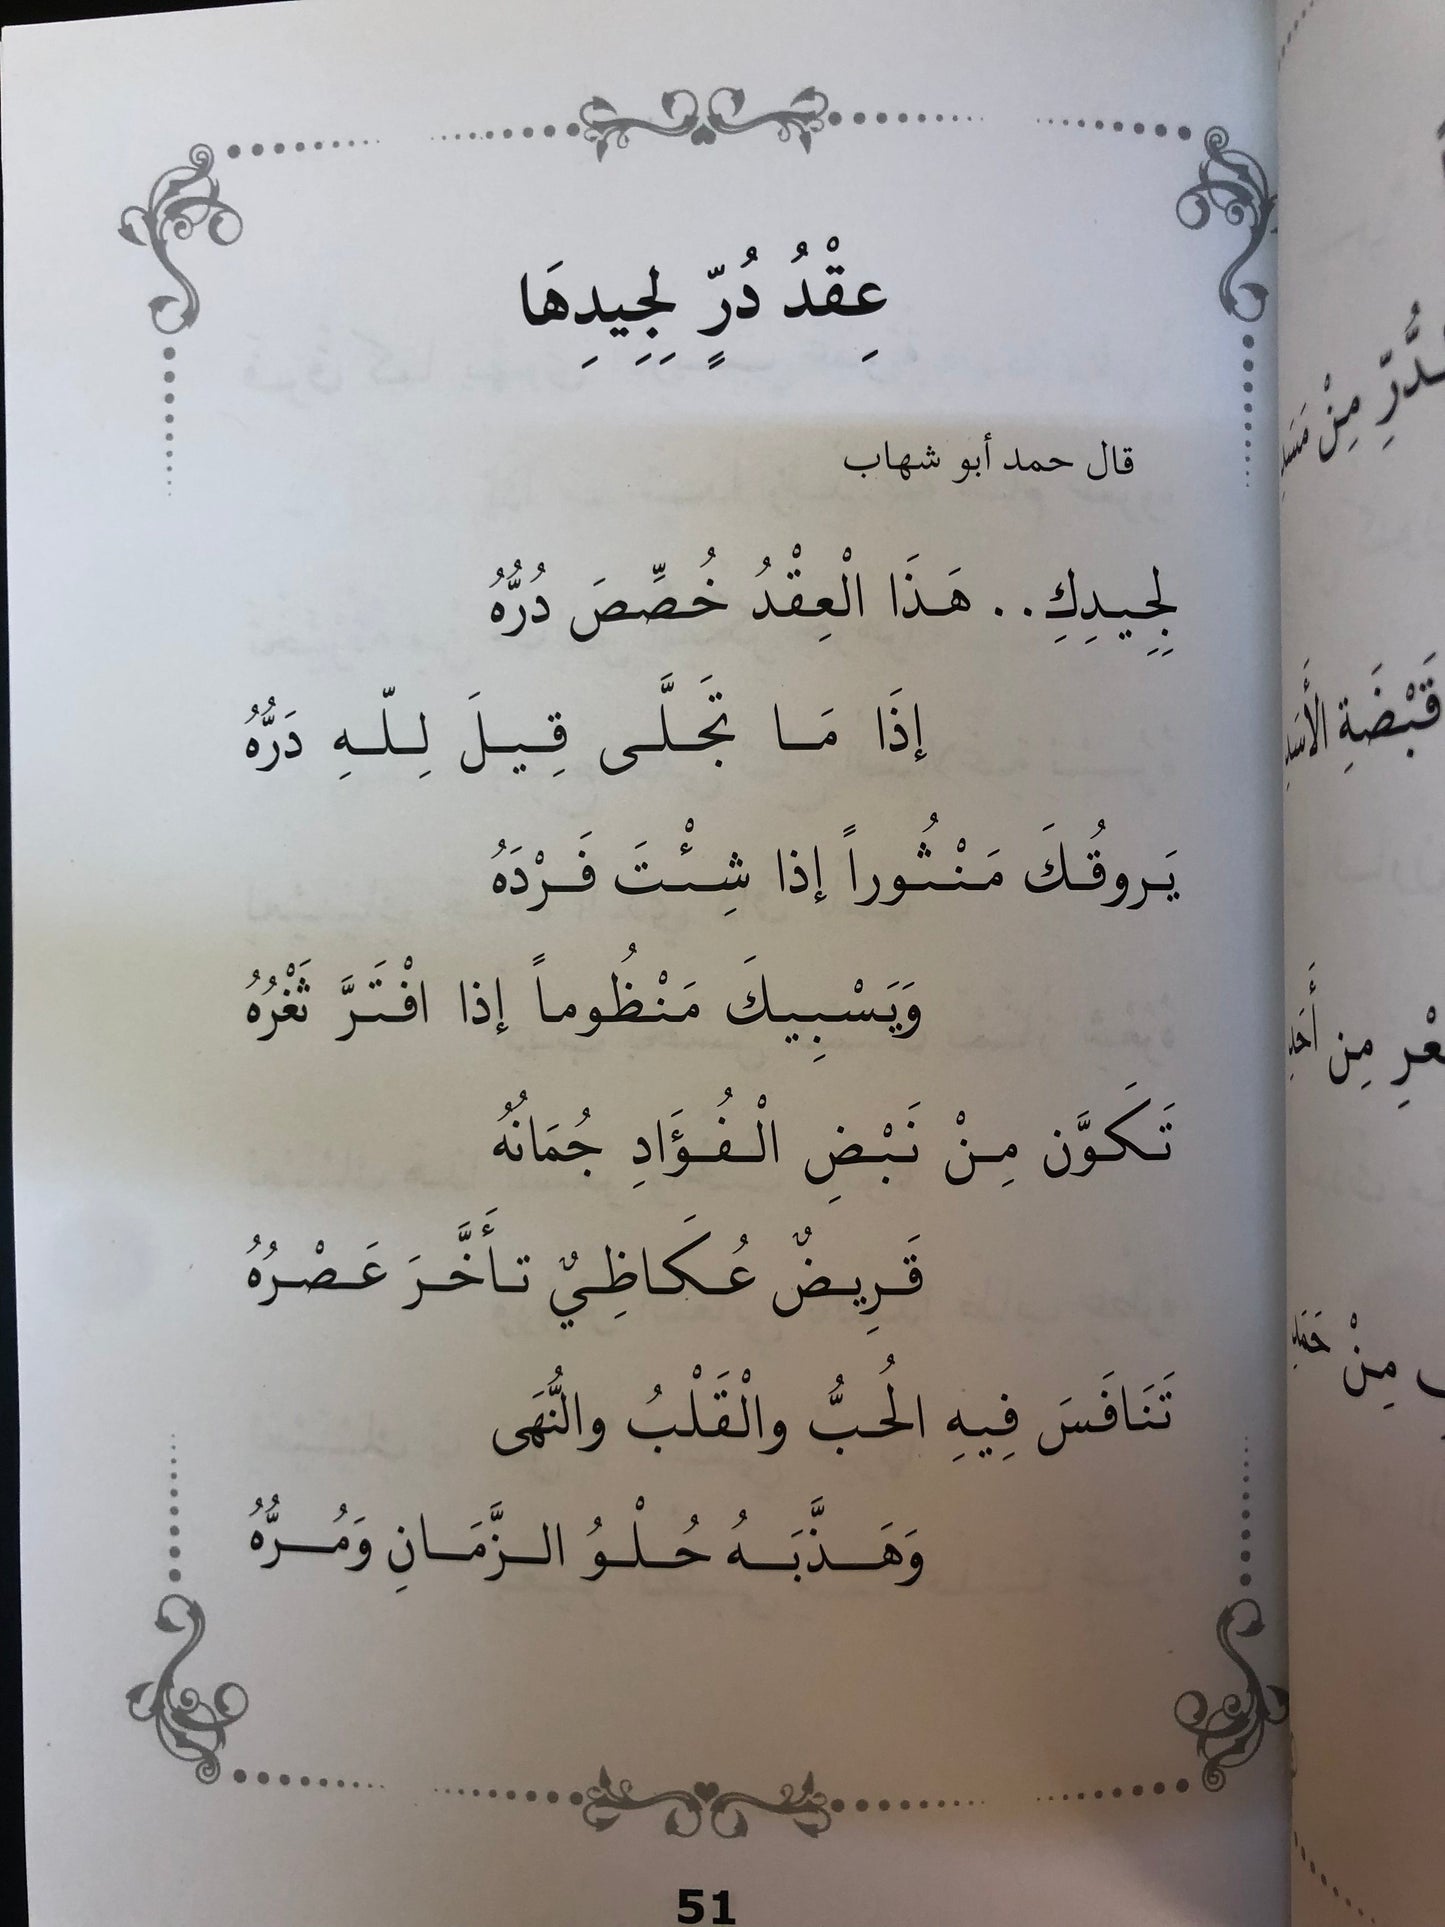 عِقْدُ دُرٍّ لِجِيدِهَا
قال حمد أبو شهاب
لِجِيدِكِ.. هَذَا الْعِقْدُ خُصِّصَ دُرُّهُ
إذَا مَا تَجَلَّى قِيلَ لِلّهِ دَرُّهُ
يَروقُكَ مَنْثُوراً إذا شِئْتَ فَرْدَهُ
وَيَسْبِيكَ مَنْظُوماً إذا افْتَرَّ ثَغْرُهُ
تَكَوَّن مِنْ نَبْضِ الْفُؤَادِ جُمَانُهُ
قَرِيضٌ عُكَاظِيٌ تأَخَّرَ عَصْرُهُ
تَنَافَسَ فِيهِ الُحبُّ والْقَلْبُ والنُّهَى
وَهَذَّبَهُ حُلْوُ الزَّمَانِ وَمُرُّهُ
51
مِنْ
قَبْضَةِ الأَسَدِ
مِن أَحَدِ
مِنْ حَمَدِ